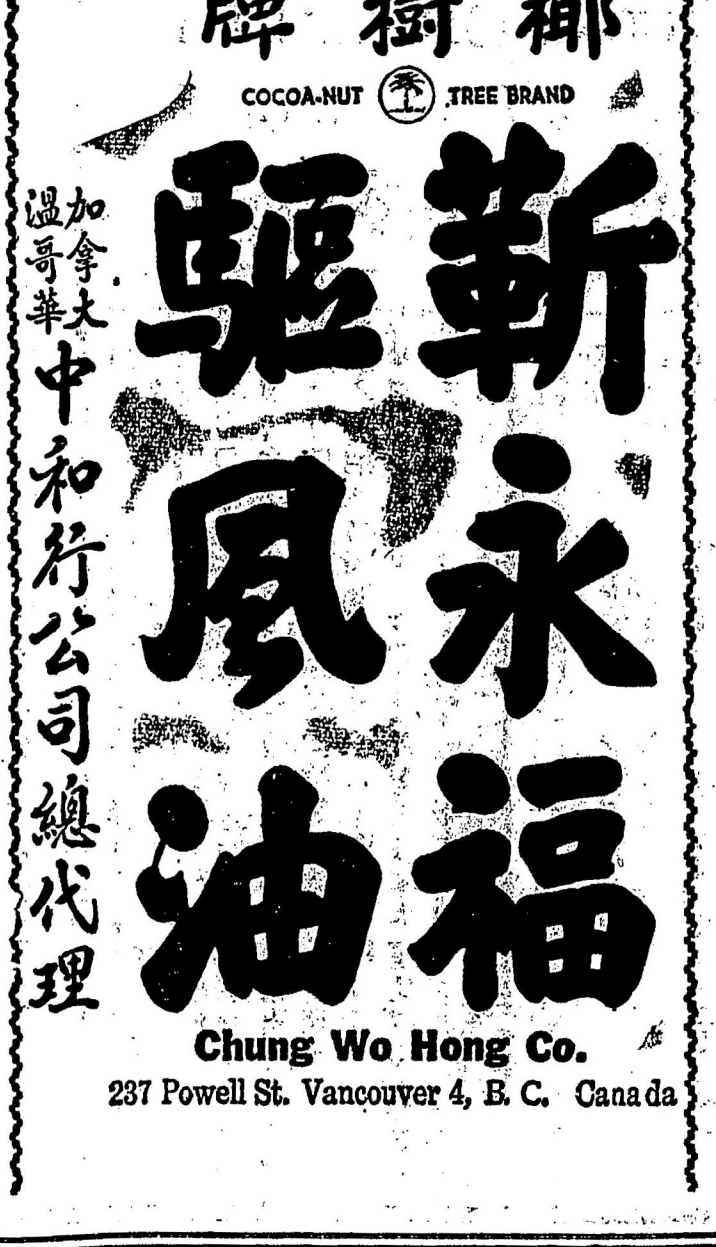 椰樹牌
COCOA-NUT TREE BRAND
蘄永福
驅風油
加拿大
溫哥華
中和行公司總代理
Chung Wo Hong Co.
237 Powell St. Vancouver 4, B. C. Canada